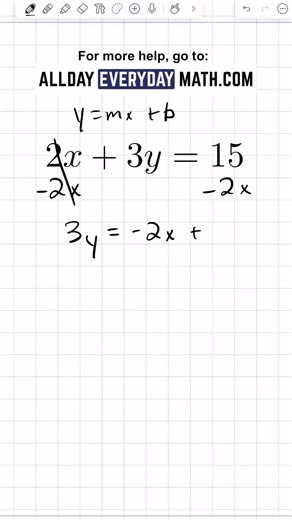 For more help, go to:
ALLDAY EVERYDAY MATH.COM
y = mx + b
2x + 3y = 15
-2x -2x
3y = -2x +